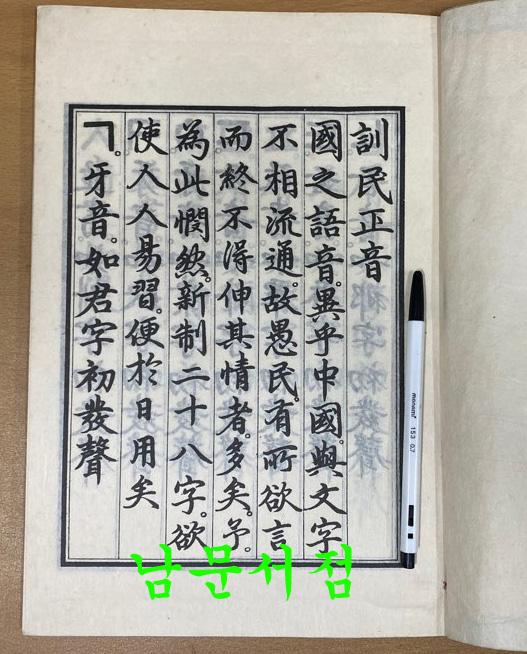 訓民正音
國之語音。異乎中國。與文字
不相流通。故愚民。有所欲言
而終不得伸其情者。多矣。予。
為此憫然。新制二十八字。欲
使人人易習。便於日用矣
ㄱ。牙音。如君字初發聲
monami 153 0.7
남문서점